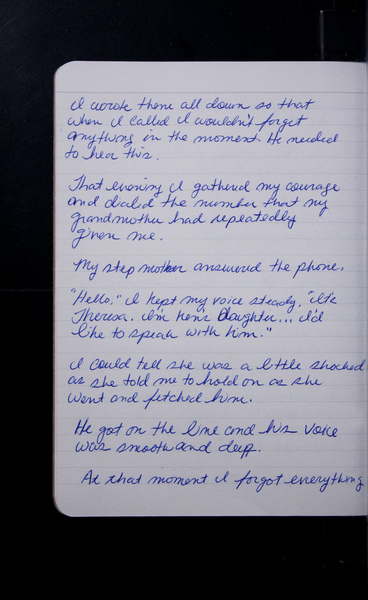 I wrote them all down so that
when I called I wouldn't forget
anything in the moment. He needed
to hear this.
That evening I gathered my courage
and dialed the number that my
grandmother had repeatedly
given me.
My step mother answered the phone.
"Hello," I kept my voice steady, "It's
Theresa. I'm Ken's Daughter... I'd
like to speak with him."
I could tell she was a little shocked
as she told me to hold on as she
went and fetched him.
He got on the line and his voice
was smooth and deep.
At that moment I forgot everything